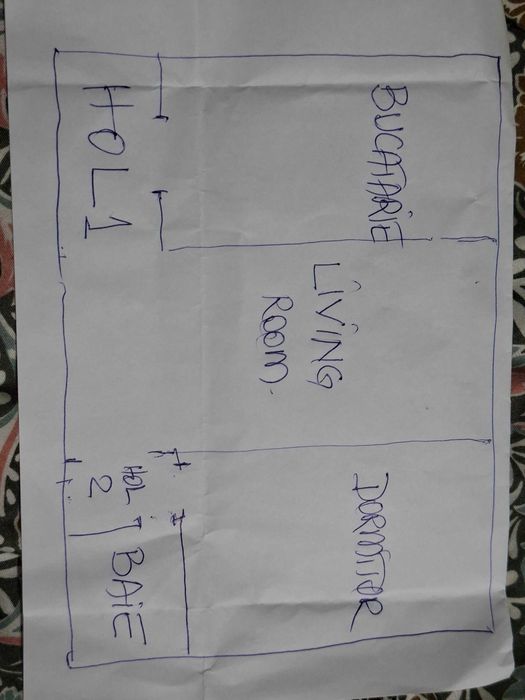 BUCATARIE
LIVING
ROOM.
DORMITOR
HOL 1
HOL
2
BAIE